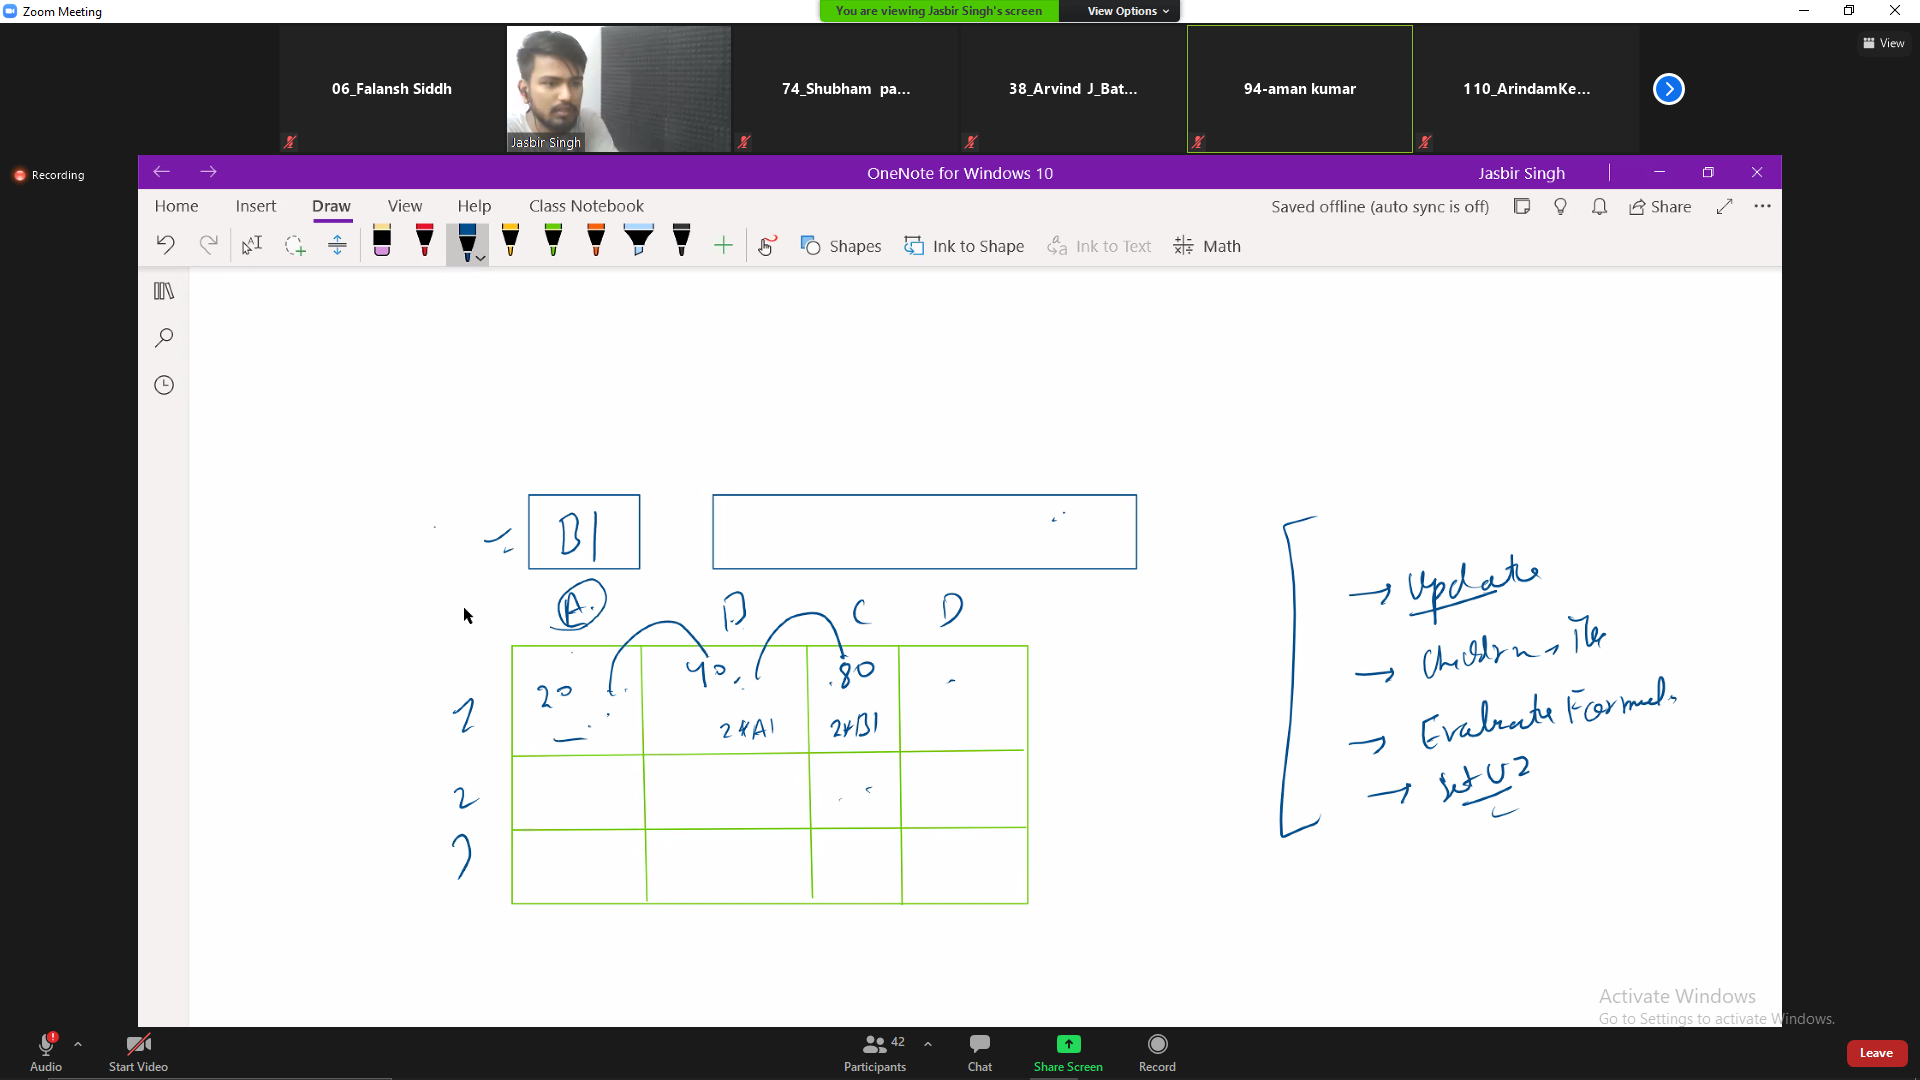 Zoom Meeting
You are viewing Jasbir Singh's screen
View Options
View
06_Falansh Siddh
Jasbir Singh
74_Shubham pa...
38_Arvind J_Bat...
94-aman kumar
110_ArindamKe...
Recording
OneNote for Windows 10
Jasbir Singh
Home Insert Draw View Help Class Notebook
Saved offline (auto sync is off)
Share
Shapes
Ink to Shape
Ink to Text
Math
B1
A B C D
1 20 40 80
2*A1 2*B1
2
3
→ Update
→ Children
→ Evaluate Formula
→ set UI
Activate Windows
Go to Settings to activate Windows.
Audio
Start Video
42
Participants
Chat
Share Screen
Record
Leave